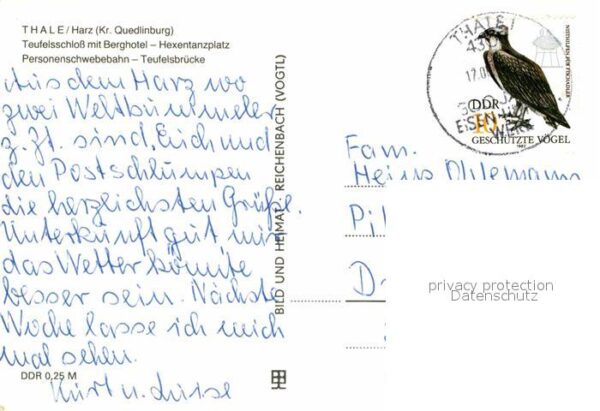 THALE/Harz (Kr. Quedlinburg)
Teufelsschloß mit Berghotel – Hexentanzplatz
Personenschwebebahn – Teufelsbrücke
Aus dem Harz wo
zwei Weltbummler
z. Zt. sind, Euch und
den Postschlumpen
die herzlichsten Grüße.
Unterkunft gut nur
das Wetter könnte
besser sein. Nächste
Woche lasse ich mich
mal sehen.
Kurt u. Luise
DDR 0,25 M
BILD UND HEIMAT REICHENBACH (VOGTL)
THALE 1
430
17.0
EISEN
WERK
DDR
10
GESCHÜTZTE VÖGEL
1982
Fam.
Heinz
Pil
D
privacy protection
Datenschutz